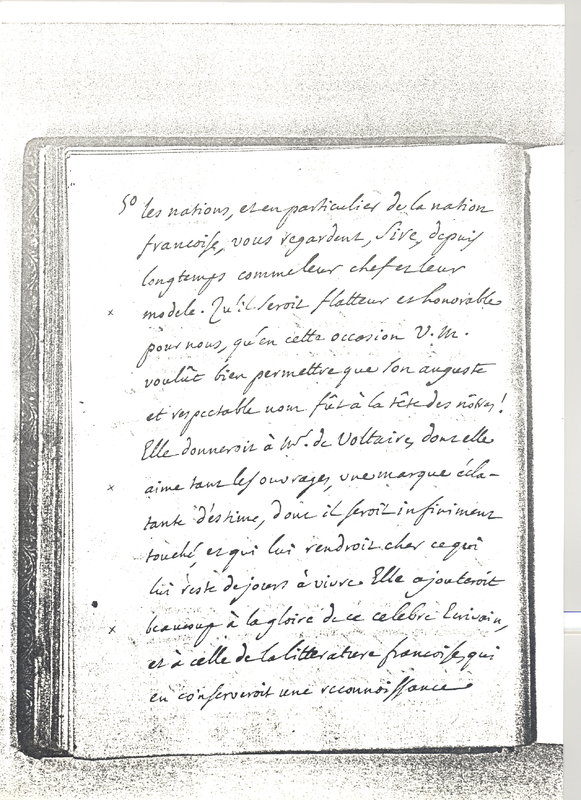 50 les nations, et en particulier de la nation
francoise, vous regardent, Sire, depuis
longtemps comme leur chef et leur
x modele. Qu'il seroit flatteur et honorable
pour nous, qu'en cette occasion V. M.
voulût bien permettre que son auguste
et respectable nom fût à la tête des nôtres!
Elle donneroit à Mr. de Voltaire, dont elle
x aime tant les ouvrages, une marque écla-
tante d'estime, dont il seroit infiniment
touché, et qui lui rendroit cher ce qui
lui reste de jours à vivre. Elle ajouteroit
x beaucoup à la gloire de ce celebre Ecrivain,
et à celle de la litterature francoise, qui
en conserveroit une reconnoissance